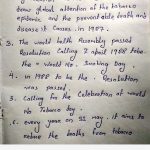 draw global attention of the tobacco
epidemic and the preventable death and
disease it causes. in 1987.
3. The would helth Assembly passed
Resolution Calling 7 april 1988 to be
the " would No . Smoking Day
4. in 1988 to be the . Resolution
was passed .
5. Calling for the Celebration of would
No Tobacco Day .
6. every year on 31 may. it aims to
reduce the deaths from tobacco